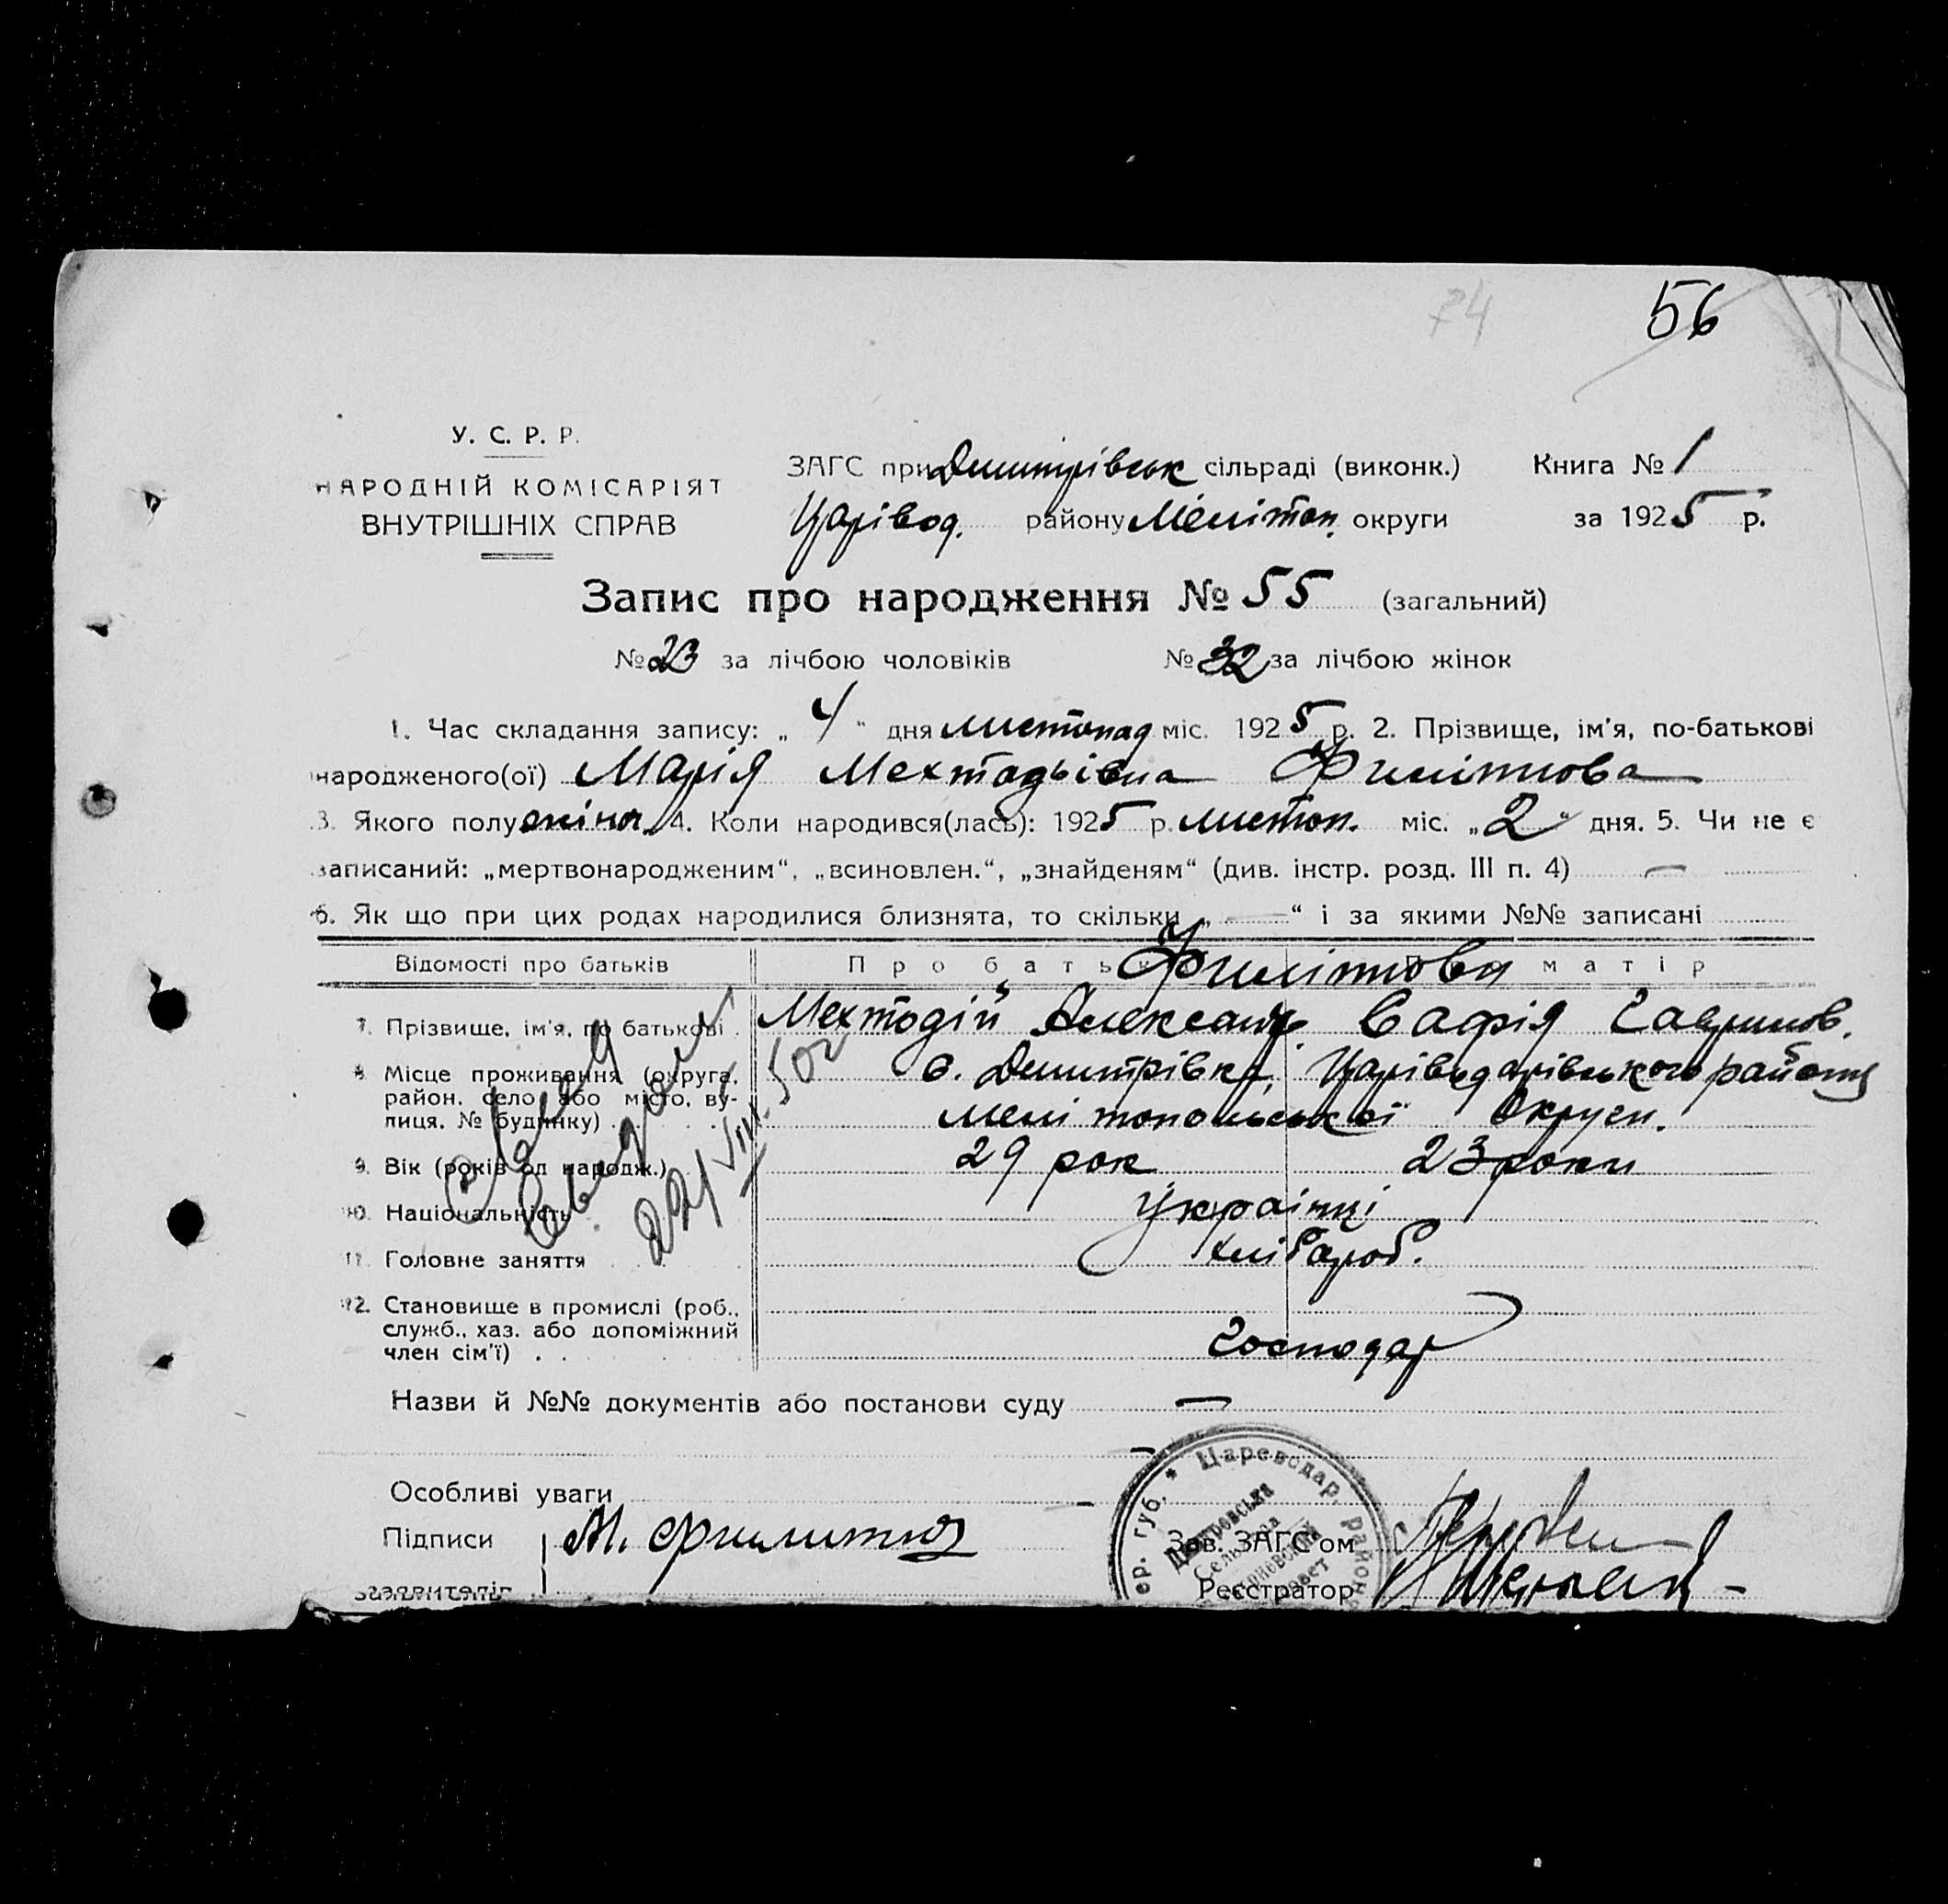 74
56
У. С. Р. Р.
НАРОДНІЙ КОМІСАРІЯТ
ВНУТРІШНІХ СПРАВ
ЗАГС при Дмитрівськ сільраді (виконк.) Книга № 1
Царівод. району Мелітоп. округи за 1925 р.
Запис про народження № 55 (загальний)
№ 23 за лічбою чоловіків № 32 за лічбою жінок
1. Час складання запису: „ 4 " дня листопад міс. 1925 р. 2. Прізвище, ім'я, по-батькові
народженого(ої) Марія Мехтадьівна Филітнова
3. Якого полу жіноч. 4. Коли народився(лась): 1925 р. листоп. міс. „ 2 " дня. 5. Чи не є
записаний: „мертвонародженим", „всиновлен.", „знайденям" (див. інстр. розд. III п. 4) —
6. Як що при цих родах народилися близнята, то скільки „ — " і за якими №№ записані
Відомості про батьків Про батька Про матір
Филітнови
7. Прізвище, ім'я, по батькові Мехтодій Александ. Сафія Гаврилов.
8. Місце проживання (округа, с. Димитрівка, Царівьдарівського району
район, село або місто, ву-
лиця, № будинку) Мелітопольськоі Округи.
9. Вік (років од народж.) 29 рок 23 роки
10. Національність Українці
11. Головне заняття Хлібароб.
12. Становище в промислі (роб.,
служб., хаз. або допоміжний
член сім'ї) Господар
22/VIII 50г
Назви й №№ документів або постанови суду —
Особливі уваги
Підписи М. Филитнов
заявителів
Зав. ЗАГС'ом
Реєстратор
ер. губ. * Цареводар. район
Дмитровська
Сельрада